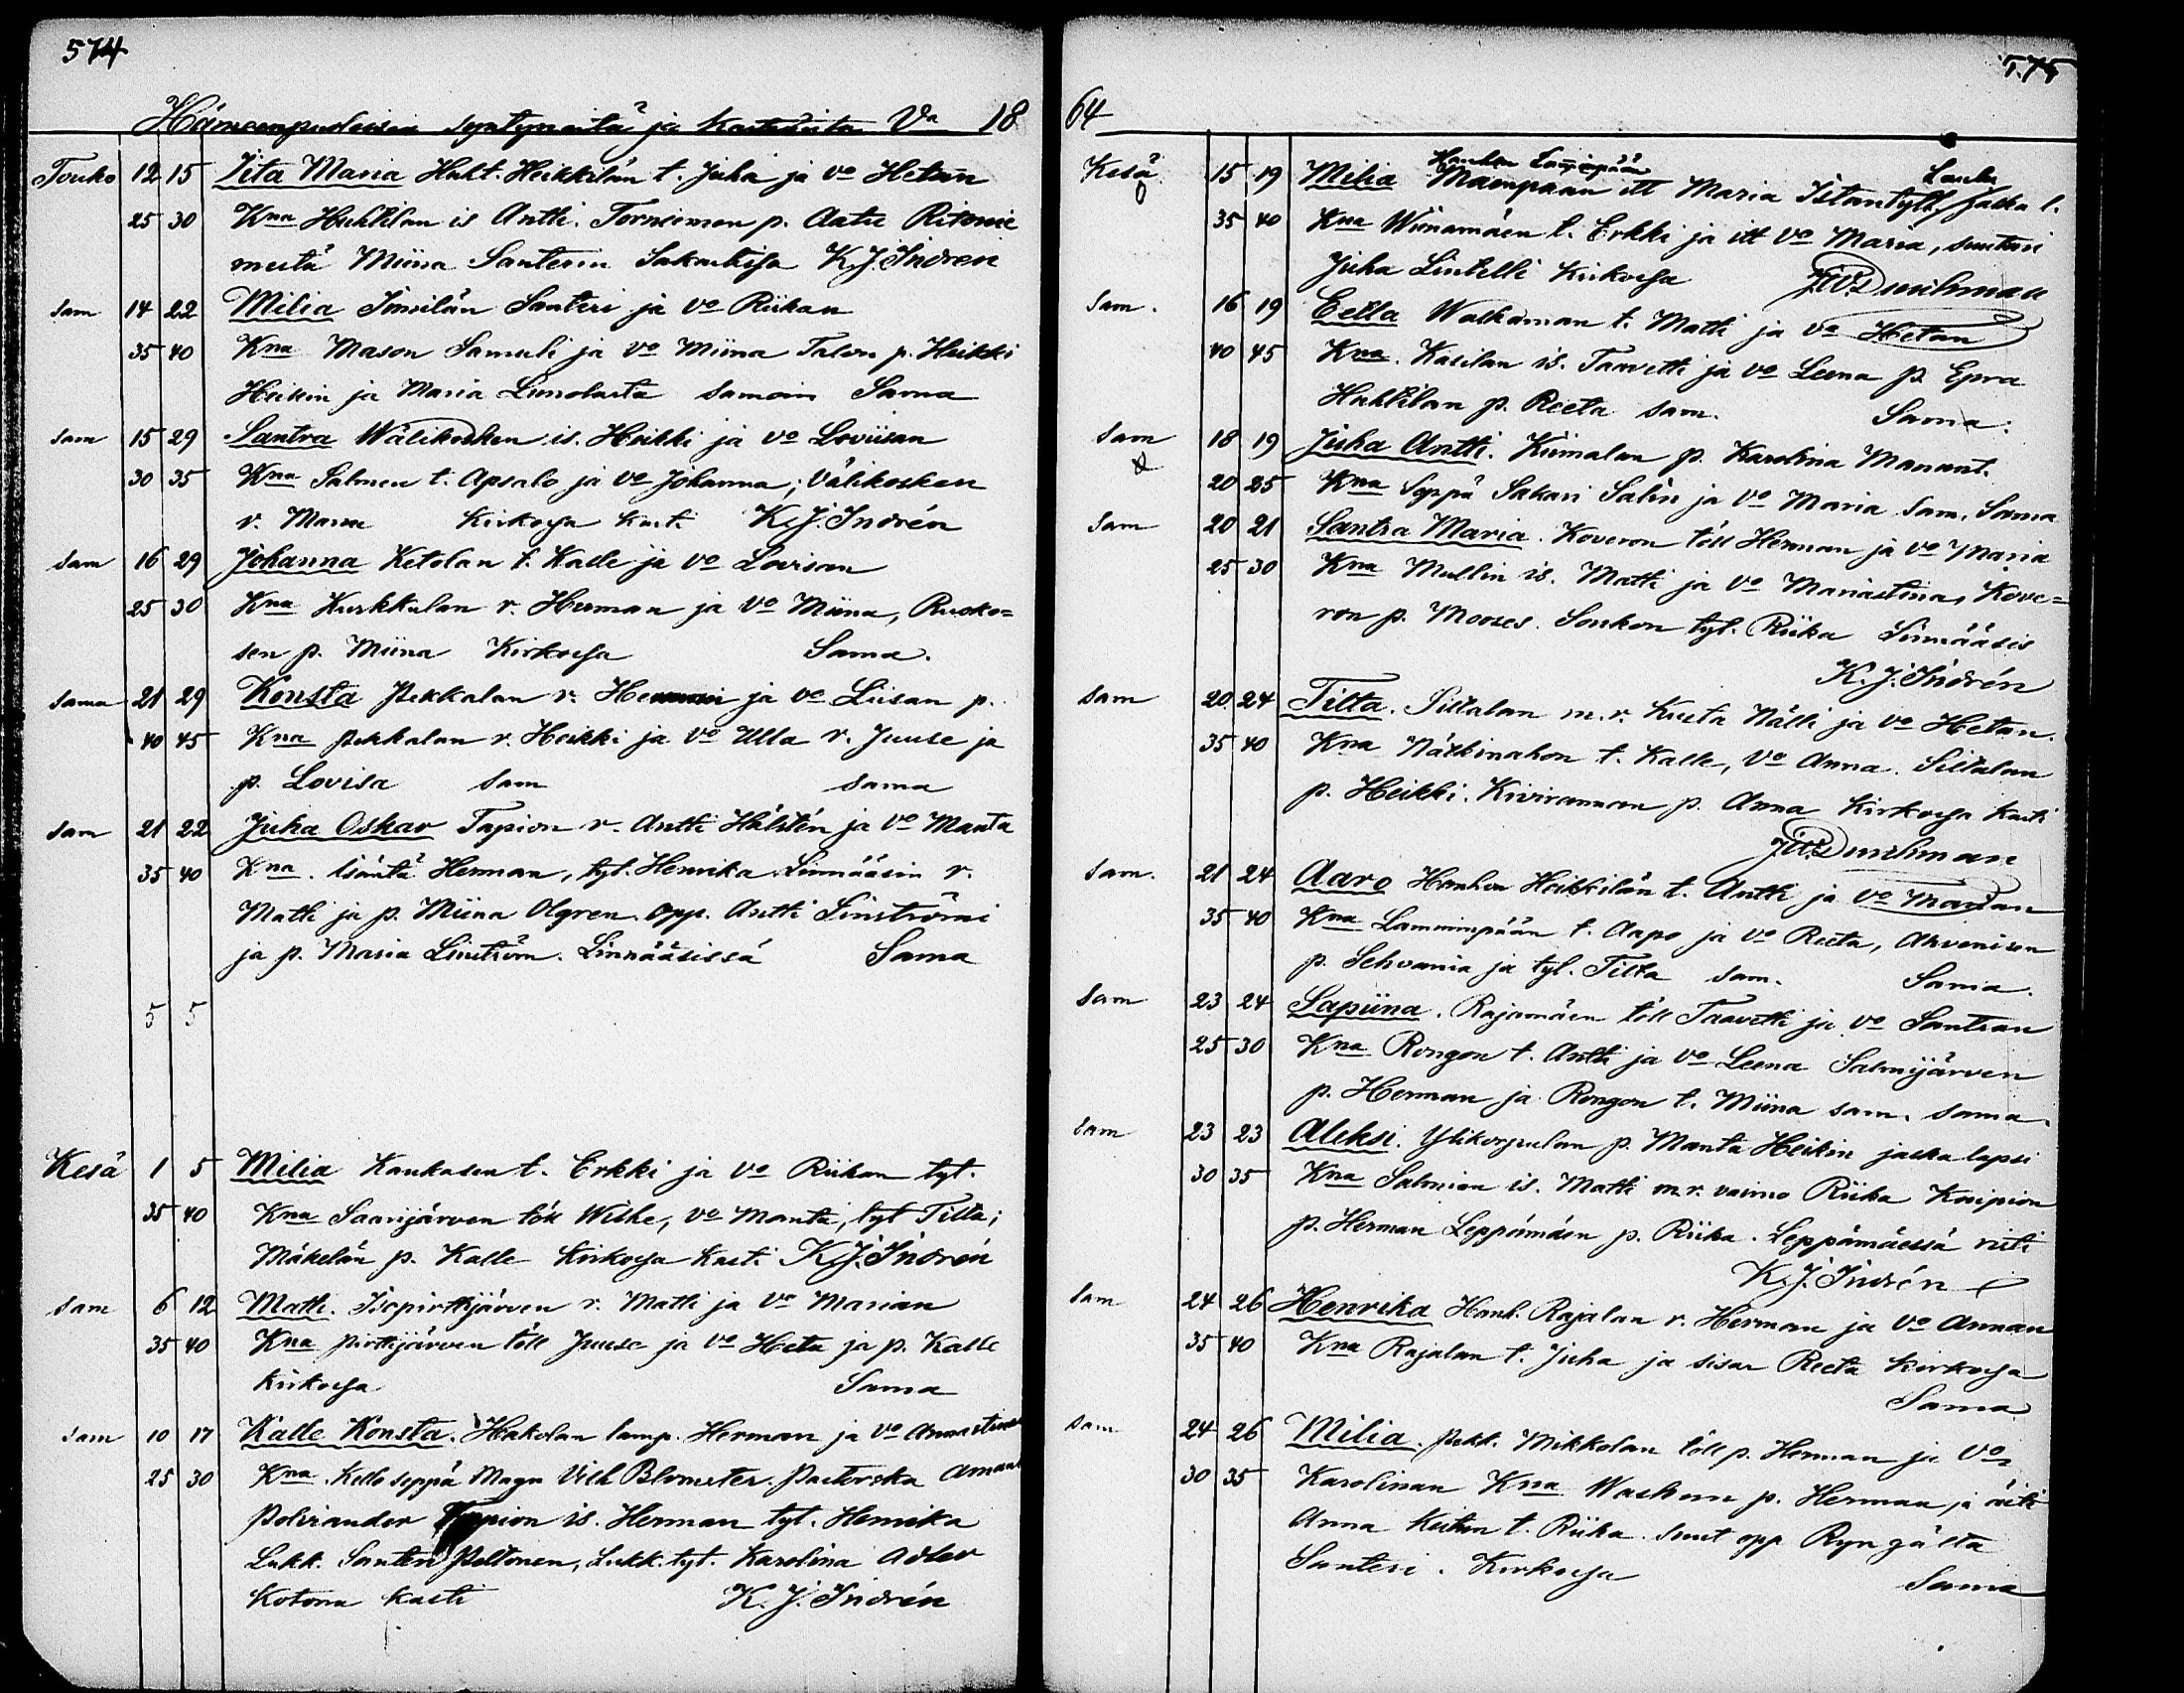 574
Hämeenpuoleisia syntyneitä ja kastetuita Vna 18
Touko 12 15 Iita Maria Huht. Heikkilän t. Juha ja vo Hetan
25 30 Kna Huhtilan is Antti. Torniemen p. Aatu Ritonie
mestä Miina Santerin Sakustissa K.J. Indren
sam 14 22 Milia Santeri ja vo Riikan
35 40 Kna Mason Samuli ja vo Miina Talon p. Heikki
Heikin ja Maria samoin Sama
sam 15 29 Santra Wälikosken is. Heikki ja vo Loviisan
30 35 Kna Salmen t. Apsalo ja vo Johanna; Välikosken
r. Maria Kirkossa kast. K.J. Indrén
sam 16 29 Johanna Ketolan t. Kalle ja vo Lovisan
25 30 Kna Kurkkulan r. Herman ja vo Miina, Ruoko=
sen p. Miina Kirkossa Sama.
sama 21 29 Konsta Pekkalan r. ja vo Liisan p.
40 45 Kna Pekkalan r. Heikki ja vo Ulla r. Juuse ja
p. Lovisa sam sama
sam 21 22 Juha Oskar Tapion r. Antti Hälstén ja vo Manta
35 40 Kna. isäntä Herman, tyt. Henrika Linnääsin r.
Matti ja p. Miina Olgren. opp. Antti Linströmi
ja p. Maria Linström. Linnääsissä Sama
5 5
Kesä 1 5 Milia Kaukasen t. Erkki ja vo Riikan tyt.
35 40 Kna Saarijärven töll Wilhe, vo Manta, tyt Tilta;
Mäkelän p. Kalle kirkossa kast. K.J. Indrén
sam 6 12 Matti. Isopirttijärven r. Matti ja vo Marian
35 40 Kna pirttijärven töll Juuse ja vo Heta ja p. Kalle
kirkossa Sama
sam 10 17 Kalle Konsta. Hakolan lamp. Herman ja vo Annastiinan
25 30 Kna. Kello seppä Magn Vilh Blomster. Pastorska Amant
Polviander Tapion is. Herman tyt. Henrika
Lukk. Santeri Peltonen, Lukk. tyt. Karolina Adler
Kotona kasti K.J. Indrén
575
64
Hauhon Lampinpään Lauha
Kesä 15 19 Milia Maenpaan itt Maria Iitantytt. Jalka l.
35 40 Kna Wiinamäen t. Erkki ja itt vo Maria, suutari
Juha Lintelli kirkossa
Sam. 16 19 Eella Walkaman t. Matti ja vo Hetan
40 45 Kna. Kasilan is. Taavetti ja vo Leena p. Epra
Huhtilan p. Reeta sam. Sama.
Sam 18 19 Juha Antti. Kiimalan p. Karolina Manant.
20 25 Kna Seppä Sakari Salin ja vo Maria sam. Sama
Sam 20 21 Santra Maria. Koveron töll Herman ja vo Maria
25 30 Kna Mullin is. Matti ja vo Mariastina, Kove=
ron p. Mooses. Sonkon tyt. Riika Linnääsis
K.J. Indrén
Sam 20 24 Tilta. Siltalan m.r. Kusta Nälli ja vo Hetan.
35 40 Kna Nälkinahon t. Kalle, vo Anna. Siltalan
p. Heikki. Kivirannan p. Anna kirkossa kasti
Sam. 21 24 Aaro Hauhon Heikkilän t. Antti ja vo Marian
35 40 Kna Lamminpään t. Aapo ja vo Reeta, Ahvenisen
p. Sehvania ja tyt. Tilta sam. Sama.
Sam 23 24 Sapiina. Rajamäen töll Taavetti ja vo Santran
25 30 Kna Rongon t. Antti ja vo Leena Salmijärven
p. Herman ja Rongon t. Miina sam. sama.
sam 23 23 Aleksi. Ylikorpulan p. Manta Heikin jaska lapsi
30 35 Kna Salmian is. Matti m.r. vaimo Riika Knipion
p. Herman Leppämäen p. Riika. Leppämäessä risti
K.J. Indrén
Sam 24 26 Henrika Hank. Rajalan r. Herman ja vo Annan
35 40 Kna Rajalan t. Juha ja sisar Reeta kirkossa
Sama
Sam 24 26 Milia. Pekk. Mikkolan töll p. Herman ja vo
30 35 Karolinan Kna p. Herman ja äiti
Anna t. Riika. Suut opp
Santeri. Kirkossa Sama